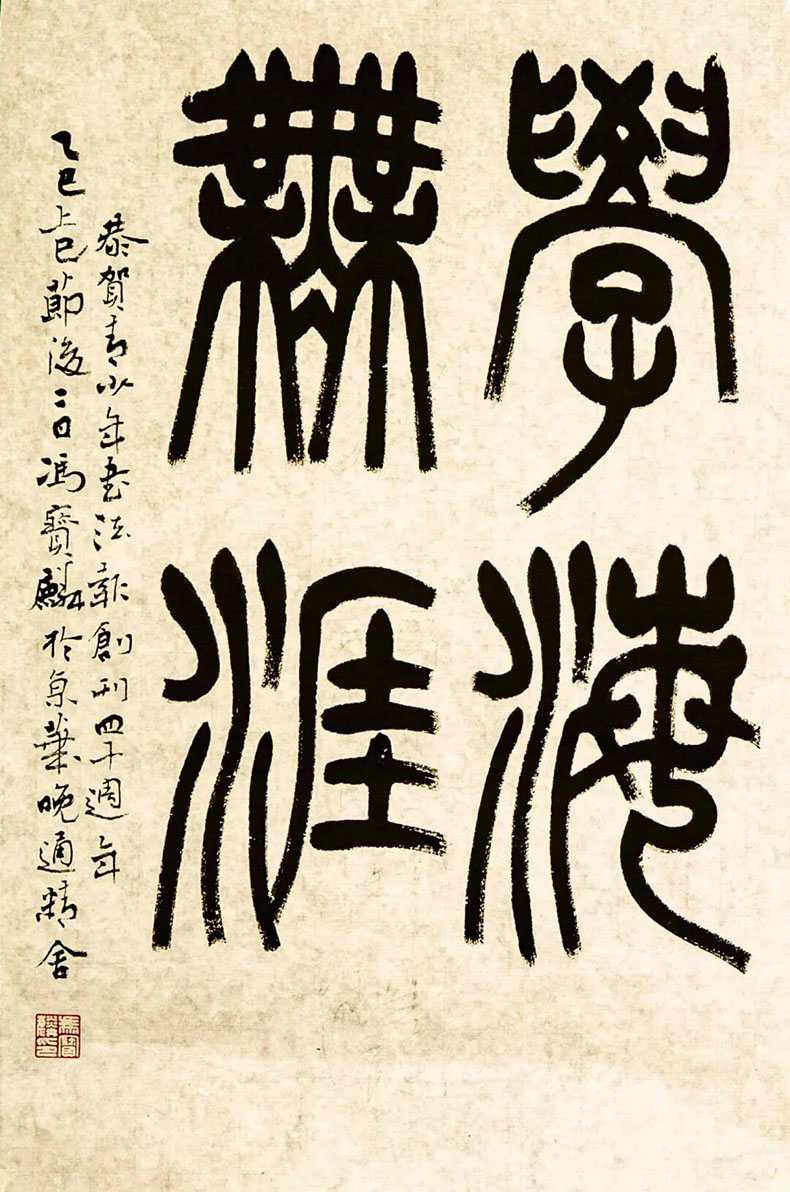 學海
無涯
恭賀青少年書法報創刊四十週年
乙巳上巳節後二日馮寶麟於京華晚通精舍
馮寶麟印